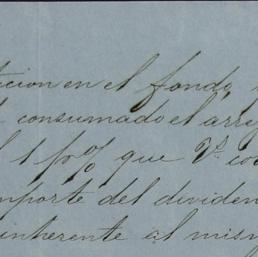 cion en el fondo,
consumado el arre
l 1 p% que Vs. co
mporte del dividen
inherente al mism